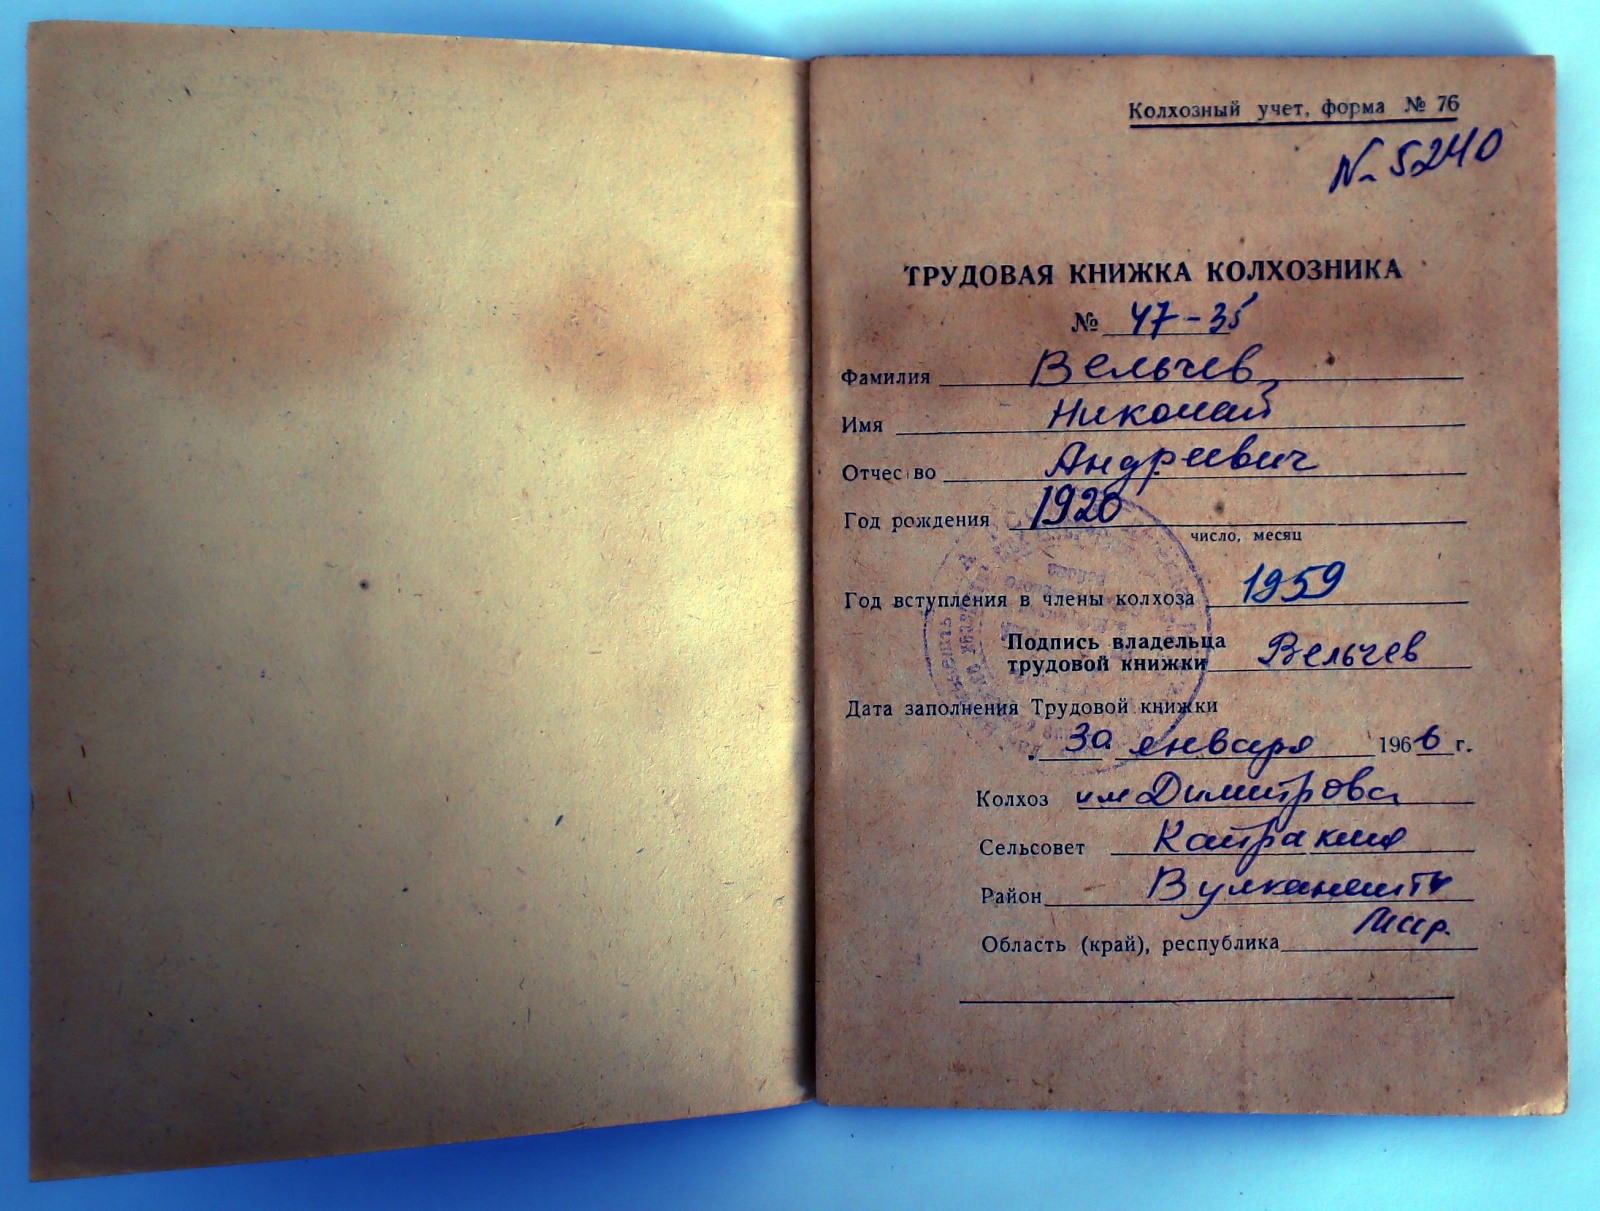 Колхозный учет, форма № 76
№ 5240
ТРУДОВАЯ КНИЖКА КОЛХОЗНИКА
№ 47-35
Фамилия Вельчев
Имя Николай
Отчес во Андреевич
Год рождения 1920
число, месяц
Год вступления в члены колхоза 1959
Подпись владельца
трудовой книжки Вельчев
Дата заполнения Трудовой книжки
30 января 1966 г.
Колхоз им Димитрова
Сельсовет
Район Вулканешты
Область (край), республика